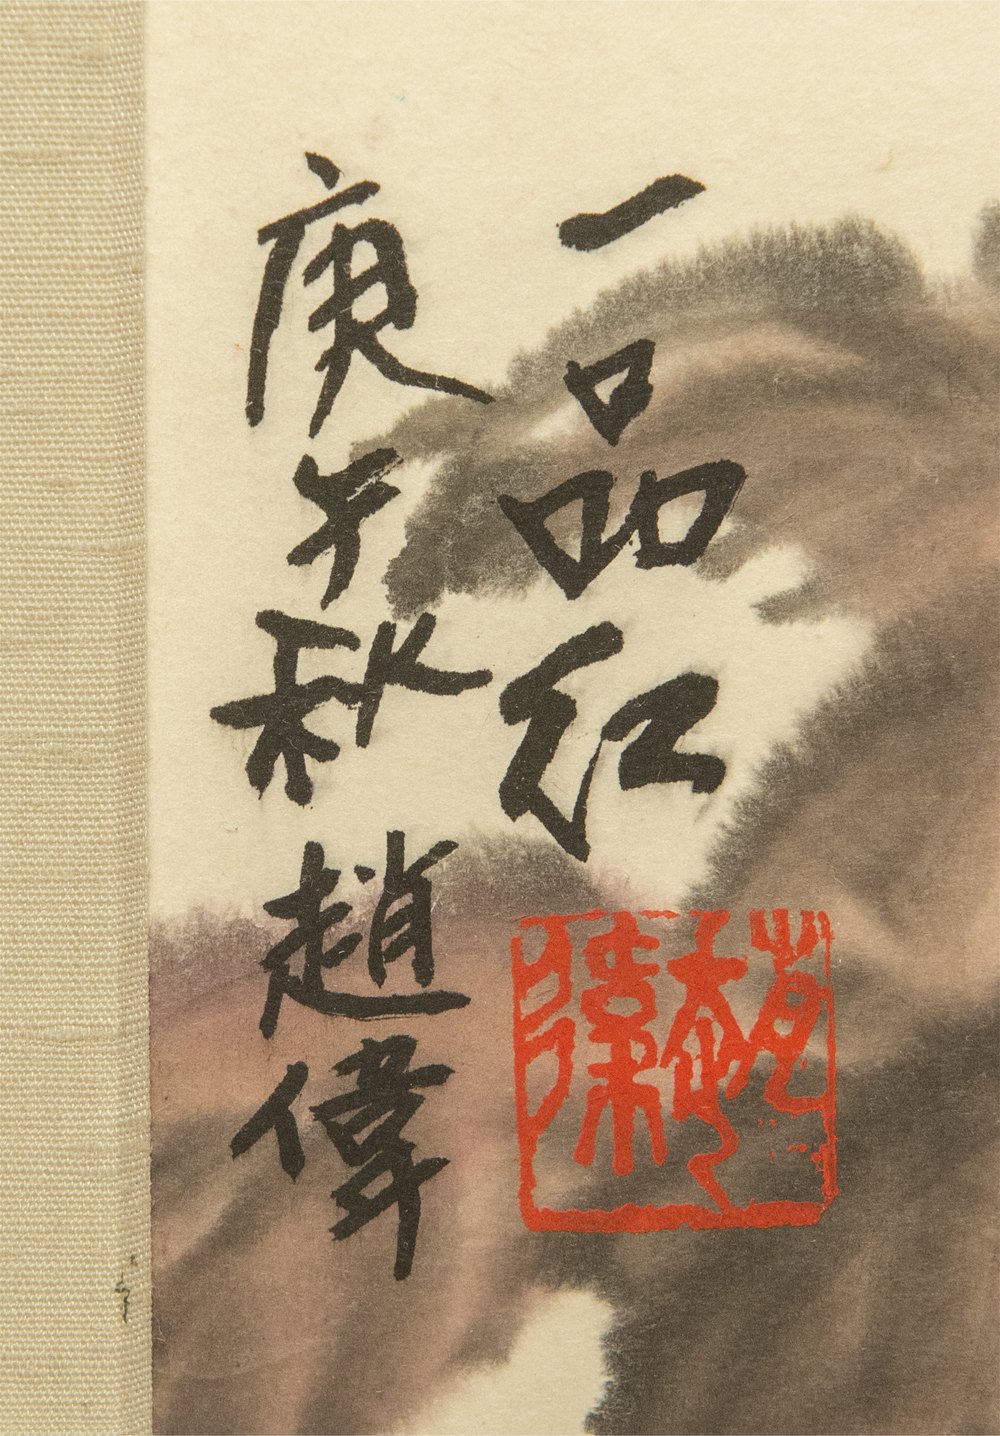 一品红
庚午秋 趙偉